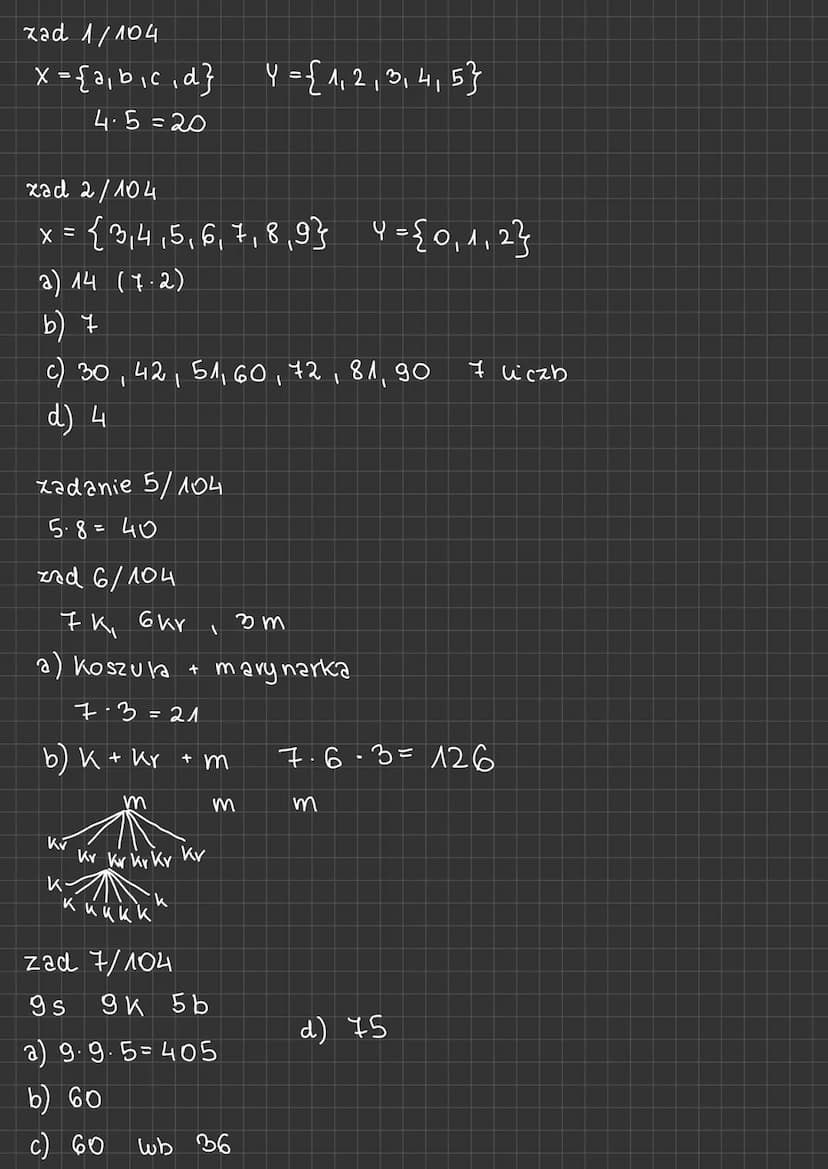 zad 1/104
X = {a, b, c, d} Y = {1, 2, 3, 4, 5}
4·5 = 20
zad 2/104
x = {3, 4, 5, 6, 7, 8, 9} Y = {0, 1, 2}
a) 14 (7·2)
b) 7
c) 30, 42, 51, 60, 72, 81, 90 7 liczb
d) 4
zadanie 5/104
5·8 = 40
zad 6/104
7 k, 6 kr, 3 m
a) koszula + marynarka
7·3 = 21
b) k + kr + m 7·6·3 = 126
m m m
kr kr kr kr kr kr
k k k k k k k
zad 7/104
9s 9k 5b
a) 9·9·5 = 405
d) 75
b) 60
c) 60 lub 36